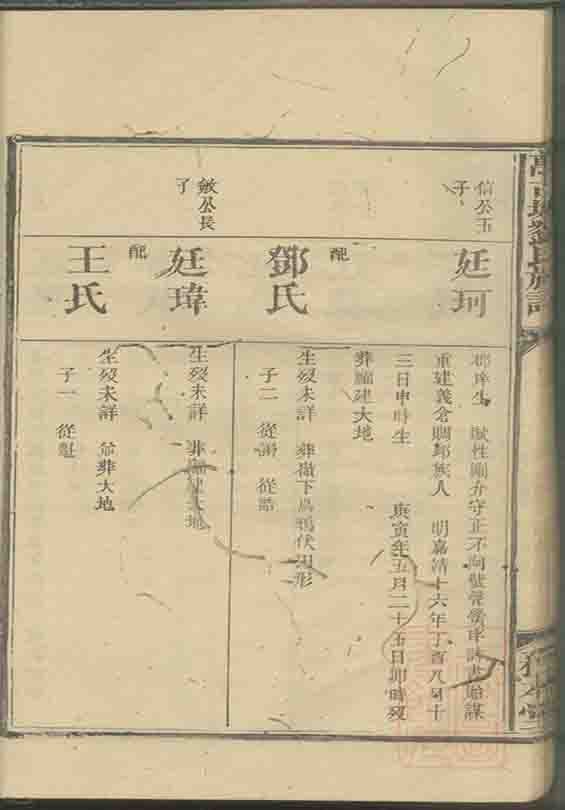 信公五
子
廷珂
郡庠生 賦性剛介守正不阿
重建義倉賙䘏族人 明嘉靖十六年丁酉八月十
三日申時生 庚寅年五月二十五日卯時歿
葬福建大地
配
鄧氏
生歿未詳 葬嶺下烏鴉伏形
子二 從 從
敏公長
子
廷瑋
生歿未詳 葬福建大地
配
王氏
生歿未詳 葬大地
子一 從魁
氏族譜